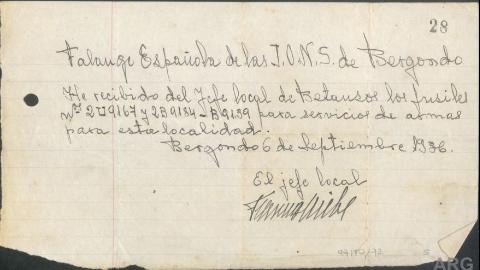 28
Falange Española de las J.O.N.S. de Bergondo
He recibido del Jefe local de Betanzos los fusiles
nos 2U9167 y 2B9184-B9139 para servicios de armas
para esta localidad.
Bergondo 6 de Septiembre 1936.
El jefe local
ARG